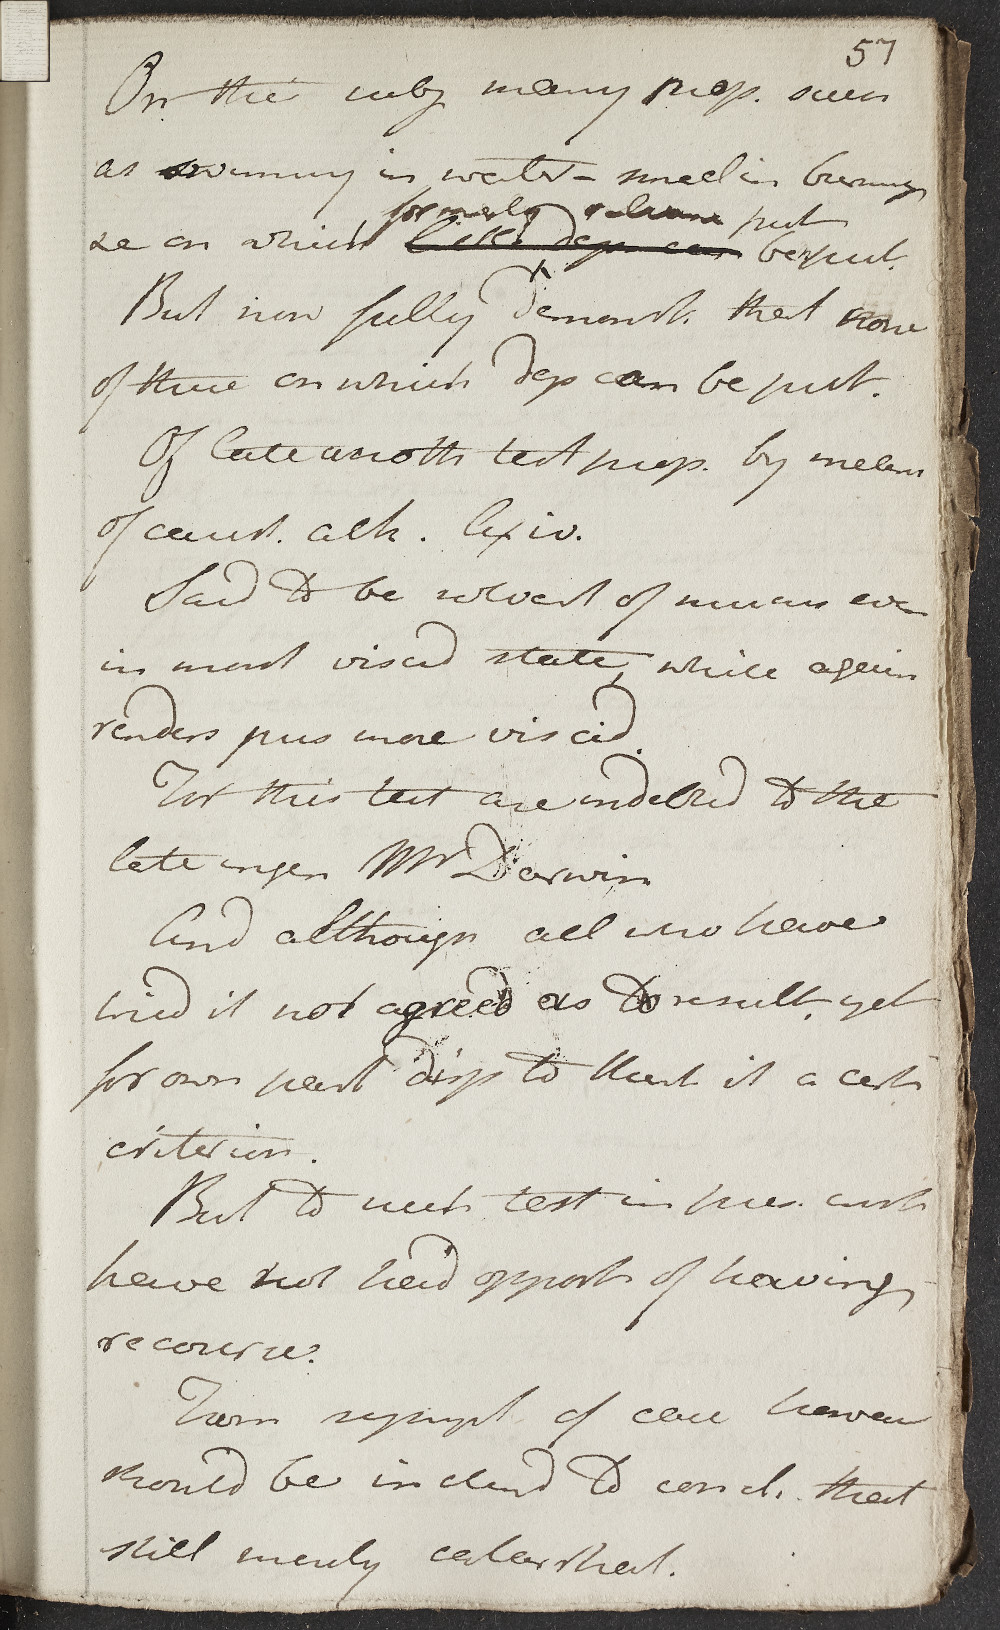 57
On this subj many props. such
as swimming in water - smell in burning
formerly reliance put
&c on which little dep can be put.
But now fully demonst. that none
of these on which dep can be put.
Of late anoth test prop. by means
of caust. alk. lixiv.
Said to be solvent of mucus even
in most viscid state, while again
renders pus more viscid.
For this test are indebted to the
late ingen Mr Darwin
And although all who have
tried it not agreed as to result, yet
for own part disp to think it a cert
criterion.
But to such test in pres. inst
have not had opport of having
recourse.
From sympt of case however
should be inclined to concl. that
still merely catarrhal.